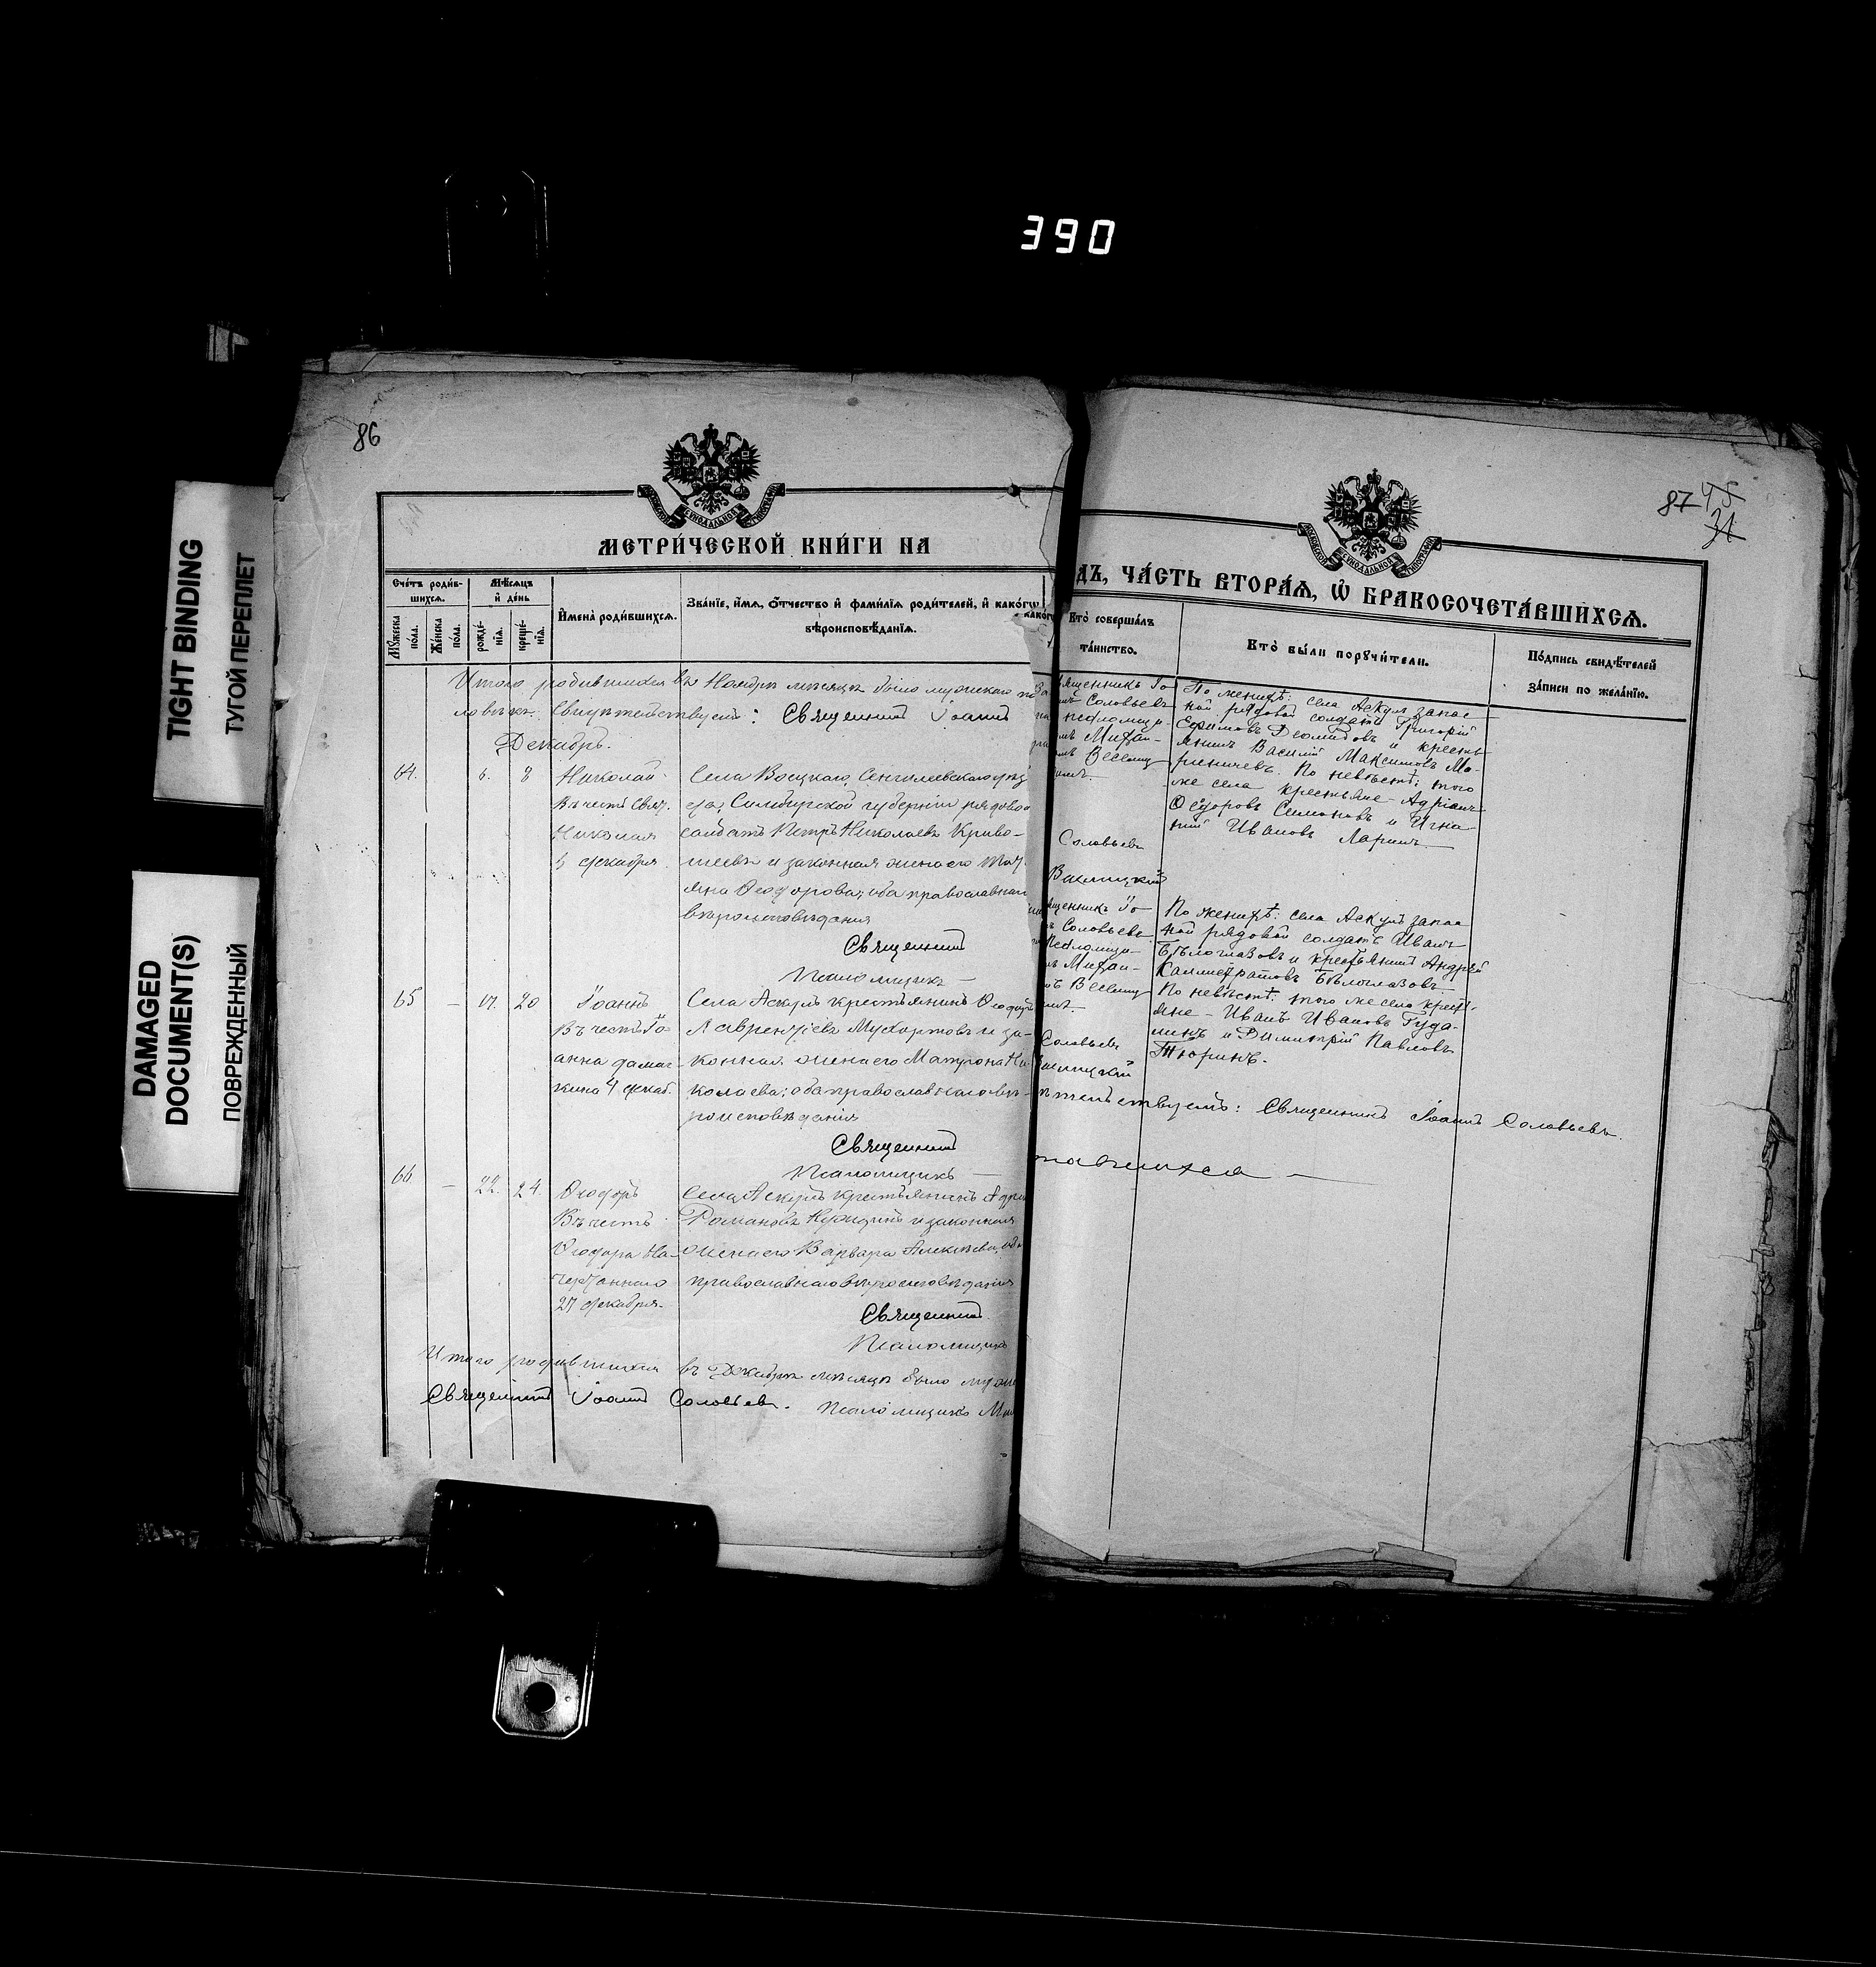 390
TIGHT BINDING
ТУГОЙ ПЕРЕПЛЕТ
DAMAGED
DOCUMENT(S)
ПОВРЕЖДЕННЫЙ
86
МЕТРИ́ЧЕСКОЙ КНИ́ГИ НА
Сче́тъ роди́в-
шихсѧ.
Мꙋ́жеска пола.
Же́нска пола.
Мѣ́сѧцъ
и҆ де́нь
рожде́-
нїѧ.
креще́-
нїѧ.
И҆мена̀ роди́вшихсѧ.
Зва́нїе, и҆́мѧ, ѻ҆́тчество и҆ фами́лїѧ роди́телей, и҆ како́гѡ
вѣроисповѣ́данїѧ.
Итого родившихся въ Ноябрѣ мѣсяцѣ было мужескаго
ловѣкъ. Свидѣтельствуемъ: Священникъ Іоаннъ
Декабрь.
64.
6.
8
Николай
Въ честь Свят.
Николая
6 декабря
Села Сенгилеевскаго уѣз
да, Симбирской губерніи рядовой
солдатъ Петръ Николаевъ Криво-
шеевъ и законная жена его Тать
яна Ѳеодорова; оба православнаго
вѣроисповѣданія
Священникъ
Псаломщикъ —
65
—
17.
20
Іоаннъ
Въ честь Іо-
анна Дамас-
кина 4 декаб.
Села Аскулъ крестьянинъ Ѳеодоръ
Лаврентіевъ Мухортовъ и за-
конная жена его Матрона Ни
колаева; оба православнаго вѣ-
роисповѣданія
Священникъ
Псаломщикъ —
66
—
22.
24.
Ѳеодоръ
Въ честь
Ѳеодора На-
чертаннаго
27 декабря.
Села Аскулъ крестьянинъ
Романовъ и законная
жена его Варвара Алексѣева, оба
православнаго вѣроисповѣданія
Священникъ
Псаломщикъ
Итого родившихся въ Декабрѣ мѣсяцѣ было муже
Священникъ Іоаннъ Соловьевъ. Псаломщикъ Ми
87
45
31
ДЪ, ЧА́СТЬ ВТОРА́Ѧ, Ѡ҆ БРАКОСОЧЕТА́ВШИХСѦ.
Кто̀ соверша́лъ
та́инство.
Кто̀ бы́ли порꙋчи́тели.
По́дпись свидѣ́телей
за́писи по жела́нїю.
вященникъ Іо-
Соловьевъ
псаломщи-
Михаи-
Веселиц
Соловьевъ
По женихѣ: села Аскулъ запас
ной рядовой солдатъ Григорій
Ефимовъ Деомидовъ и кресть
янинъ Василій Максимовъ Ма-
ріничевъ. По невѣстѣ: того
же села крестьяне Адріанъ
Ѳедоровъ Симоновъ и Игна-
тій Ивановъ Ларинъ.
щенникъ Іо-
Соловьевъ
Псаломщи-
Михаи-
Веселиц
Соловьевъ
По женихѣ: села Аскулъ запас
ной рядовой солдатъ Иванъ
Бѣлоглазовъ и крестьянинъ Андрей
Каллистратовъ Бѣлоглазовъ
По невѣстѣ: того же села крест-
яне — Иванъ Ивановъ Гуда-
линъ и Димитрій Павловъ
Тюринъ.
тельствуемъ: Священникъ Іоаннъ Соловьевъ.
тавшихся —